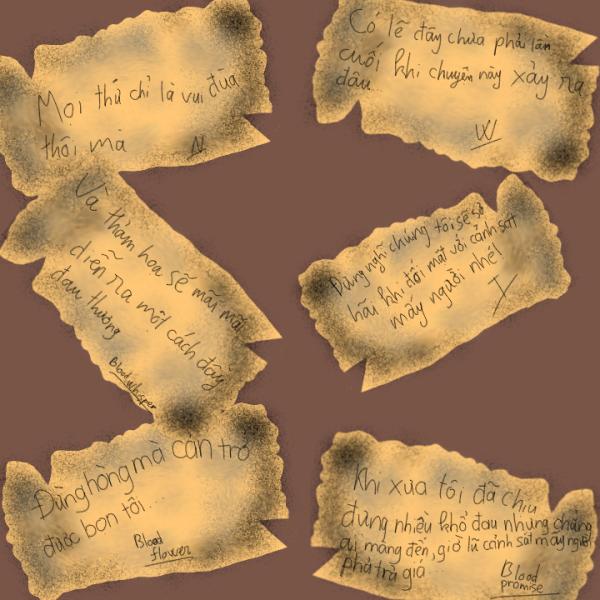 Mọi thứ chỉ là vui đùa
thôi mà
N
Có lẽ đây chưa phải lần
cuối khi chuyện này xảy ra
đâu...
W
Và thảm hoạ sẽ mãi mãi
diễn ra một cách đầy
đau thương
Blood whisper
Đừng nghĩ chúng tôi sẽ sợ
hãi khi đối mặt với cảnh sát
mấy người nhé!
Y
Đừng hòng mà cản trở
được bọn tôi...
Blood
flower
Khi xưa tôi đã chịu
đựng nhiều khổ đau nhưng chẳng
ai màng đến, giờ lũ cảnh sát mấy người
phải trả giá
Blood
promise